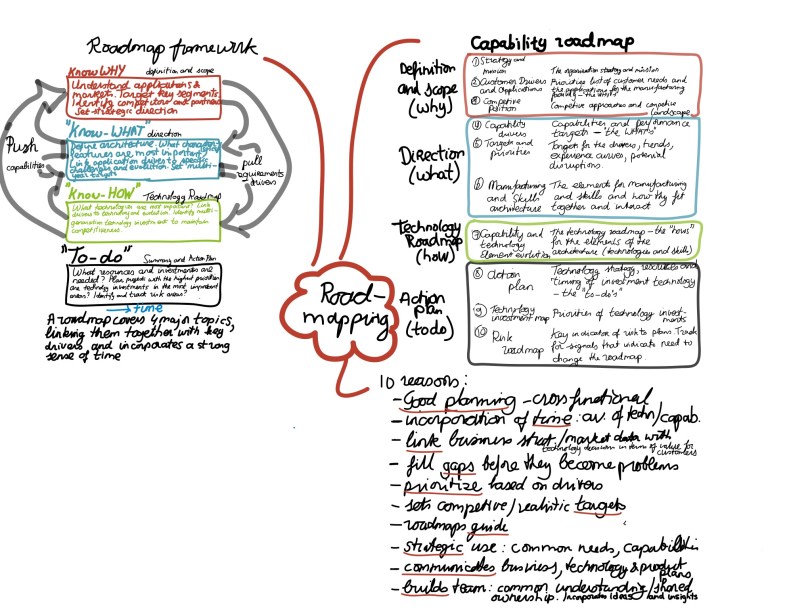 Roadmap framework
Know WHY definition and scope
Understand applications &
market. Target key segments.
Identify competitor and partners
Set strategic direction
"Know-WHAT" direction
Define architecture. What
features are most important?
Link application drivers to specific
challenges and evolution. Set multi-
year targets
"Know-HOW" Technology Roadmap
What technologies are most important? Link
drivers to technology and evolution. Identify multi-
generation technology investment to maintain
competitiveness.
"To-do" Summary and Action Plan
What resources and investments are
needed? Plan projects with the highest priorities
are technology investments in the most important
areas? Identify and track risk areas?
→ time
Push
capabilities
pull
requirements
drivers
A roadmap covers 4 major topics,
linking them together with key
drivers and incorporates a strong
sense of time
Road-
mapping
Capability roadmap
Definition
and scope
(why)
① Strategy and
mission The organisation strategy and mission
② Customer Drivers
and Applications Priorities list of customer needs and
the applications by the manufacturing
③ Competive
position Competive approaches and competive
landscape
Direction
(what)
④ Capability
drivers Capabilities and performance
targets - "the WHATs"
⑤ Targets and
priorities Targets for the drivers, trends,
experience curves, potential
disruptions.
⑥ Manufacturing
and Skills
architecture The elements for manufacturing
and skills and how they fit
together and interact
Technology
Roadmap
(how)
⑦ Capability and
technology
Element evolution The technology roadmap - the "hows"
for the elements of the
architecture (technologies and skills)
Action
plan
(to do)
⑧ Action
plan Technology strategy, resources and
timing of investment technology
- the "to-do's"
⑨ Technology
investment map Priorities of technology invest-
ments
⑩ Risk
roadmap Key indicator of risk to plan. Track
for signals that indicate need to
change the roadmap.
10 reasons:
- Good planning - cross functional
- incorporation of time: av. of techn/capab.
- link business strat./market data with
technology decisions in term of value for
customers
- fill gaps before they become problems
- prioritize based on drivers
- sets competive/realistic targets
- roadmaps guide
- strategic use: common needs, capabilities
- communicates business, technology & product
plans
- builds team: common understanding/shared
ownership. Incorporates ideas and insights